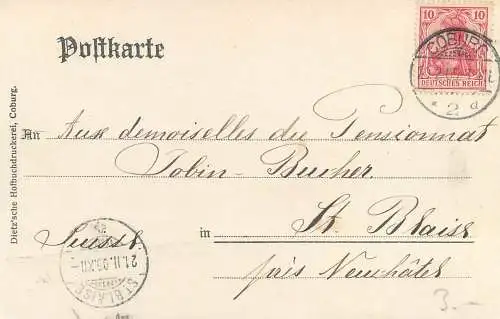 Postkarte
10
DEUTSCHES REICH
COBURG
* 2 d
Dietz'sche Hofbuchdruckerei, Coburg.
An Aux demoiselles du Pensionnat
Tobin-Bucher.
in St. Blaise
Suisse
près Neuchâtel
ST. BLAISE
21.II.05.XII-
3.-